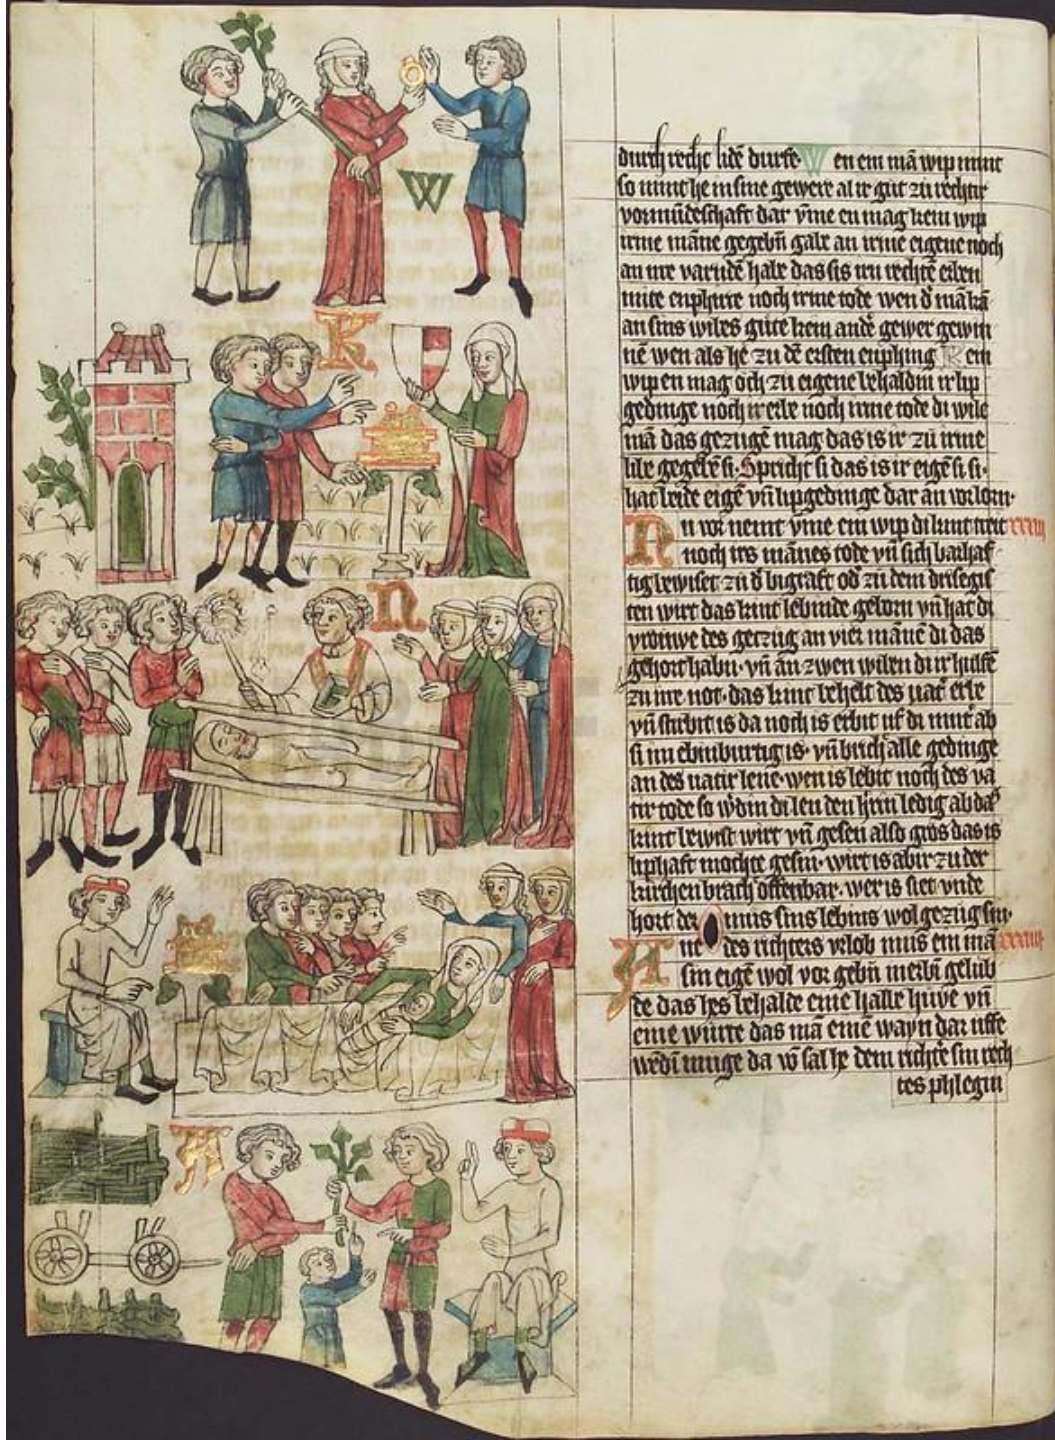 W
K
N
A
durch recht lidē durfe W en ein mā wip nimt
so nimt he in sine gewere al ir gut zu rechtir
vormūdeschaft dar v̄me en mag kein wip
irme māne gegebn̄ gabe an irme eigene noch
an ire varndē habe das sis irn rechtē erben
mite enphure noch irme tode wen d̕ mā kā
an sins wibes gute kein and̕e gewer gewin
nē wen als he zu dē ersten enphing K ein
wip en mag och zu eigene behaldin ir lip
gedinge noch ir erbe noch irme tode di wile
mā das gezugē mag das is ir zu irme
libe gegebē si. Spricht si das is ir eigē si si
hat beide eigē vn̄ lipgedinge dar an vorlorn.
N u vor nemt v̄me ein wip di kint treit xxxiij
noch irs mānes tode vn̄ sich barhaf
tig bewiset zu d̕ bigraft od̕ zu dem drisegis
ten wirt das kint lebinde geborn vn̄ hat di
vrouwe des gezug an vier mānē di das
gehort habn̄. vn̄ an zwen wiben di ir hulfē
zu ire not. das kint behelt des vat̕ erbe
vn̄ stirbit is da noch is erbit uf di mut̕ ab
si im ebinburtig is. vn̄ brich̕ alle gedinge
an des vatir lene. wen is lebit noch des va
tir tode so w̕din di len den h̕rin ledig ab da̕
kint bewist wirt vn̄ gesen also gros das is
liphaft mochte gesin. wirt is abir zu der
kirchen brach offenbar. wer is siet unde
hort der mus sins lebins wol gezug sin.
A ne des richters vrlob mus ein mā xxxiiij
sin eigē wol vor gebn̄ mit erbn̄ gelub
de das hes behalde eine halbe huve vn̄
eine wurte das mā einē wayn dar uffe
wēdī muge da vō sal he dem richtē sin rech
tes phlegin